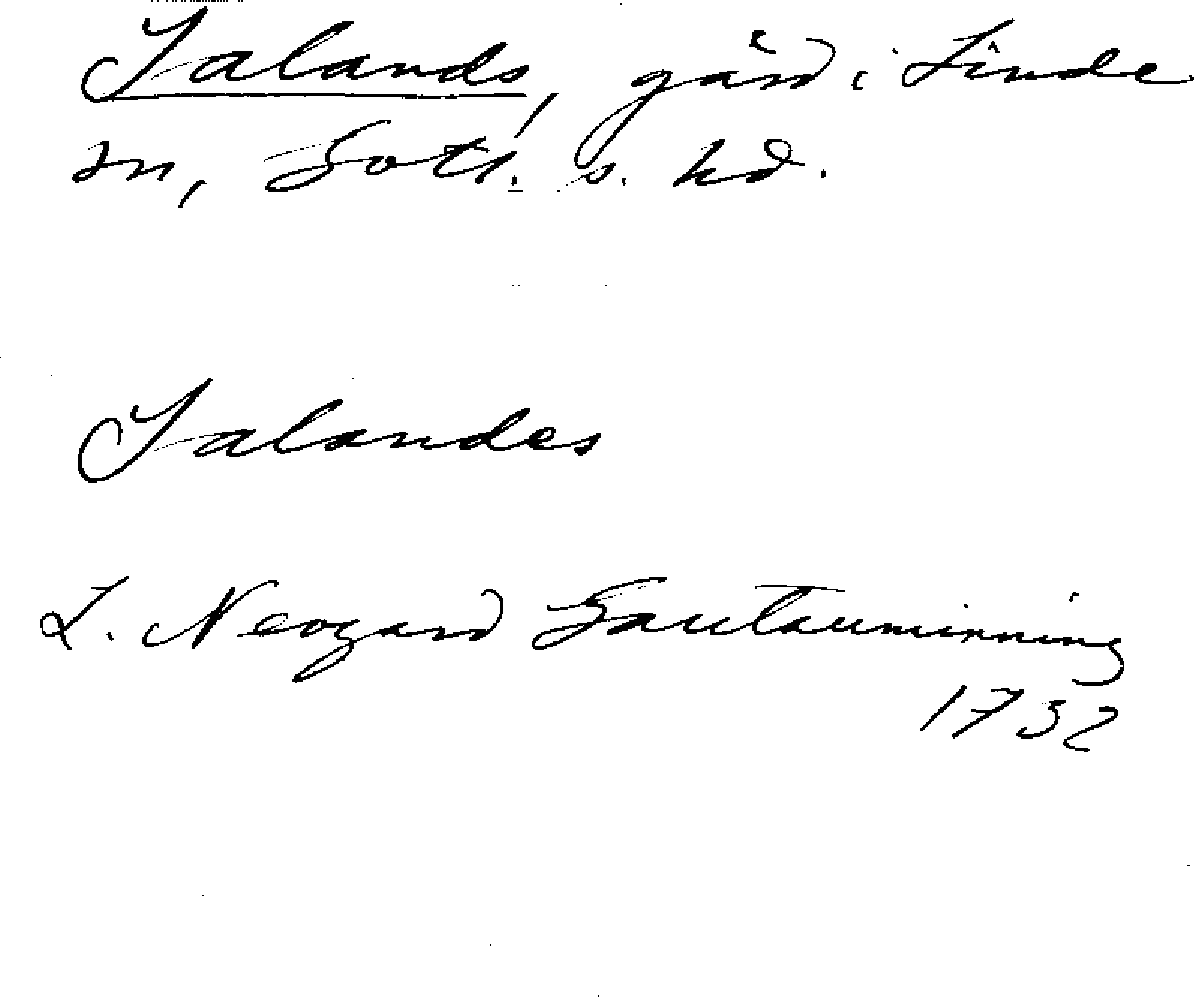 Jalands, gård i Linde
sn, Gotl. s. hd.
Jalandes
L. Neogard Gautauminning
1732